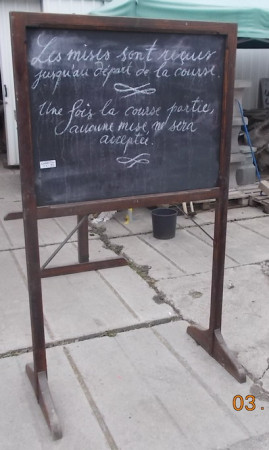 Les mises sont reçues
jusqu'au départ de la course.
Une fois la course partie,
aucune mise ne sera
acceptée.
03.